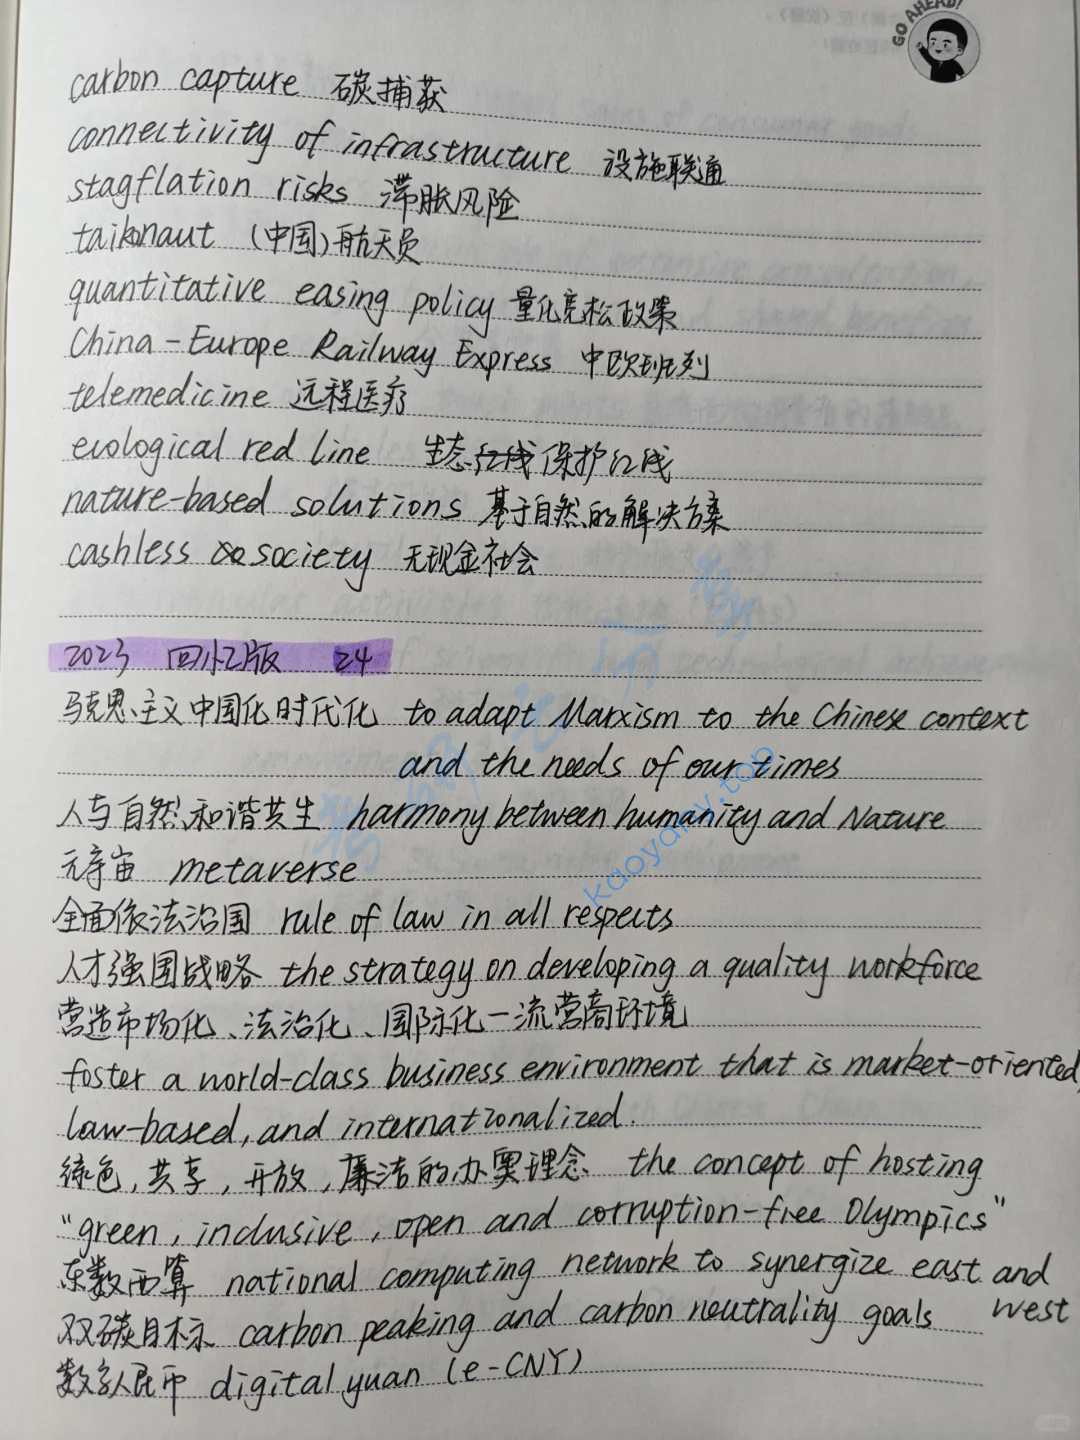 GO AHEAD!
carbon capture 碳捕获
connectivity of infrastructure 设施联通
stagflation risks 滞胀风险
taikonaut (中国)航天员
quantitative easing policy 量化宽松政策
China-Europe Railway Express 中欧班列
telemedicine 远程医疗
ecological red line 生态红线保护红线
nature-based solutions 基于自然的解决方案
cashless society 无现金社会
2023 回忆版 24
马克思主义中国化时代化 to adapt Marxism to the Chinese context
and the needs of our times
人与自然和谐共生 harmony between humanity and Nature
元宇宙 metaverse
全面依法治国 rule of law in all respects
人才强国战略 the strategy on developing a quality workforce
营造市场化、法治化、国际化一流营商环境
foster a world-class business environment that is market-oriented,
law-based, and internationalized.
绿色,共享,开放,廉洁的办奥理念 the concept of hosting
"green, inclusive, open and corruption-free Olympics"
东数西算 national computing network to synergize east and
west
双碳目标 carbon peaking and carbon neutrality goals
数字人民币 digital yuan (e-CNY)
kaoyany.top